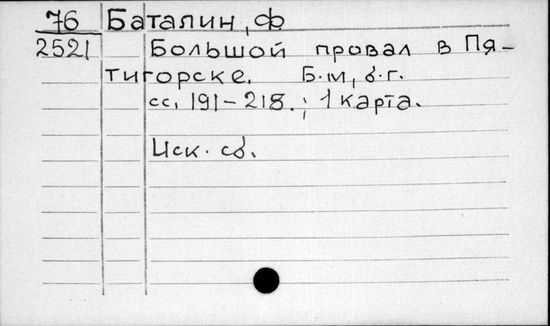 76 Баталин, Ф
2521 Большой провал в Пя-
тигорске. Б.м, б.г.
сс. 191-218.; 1 карта.
Иск. сб.